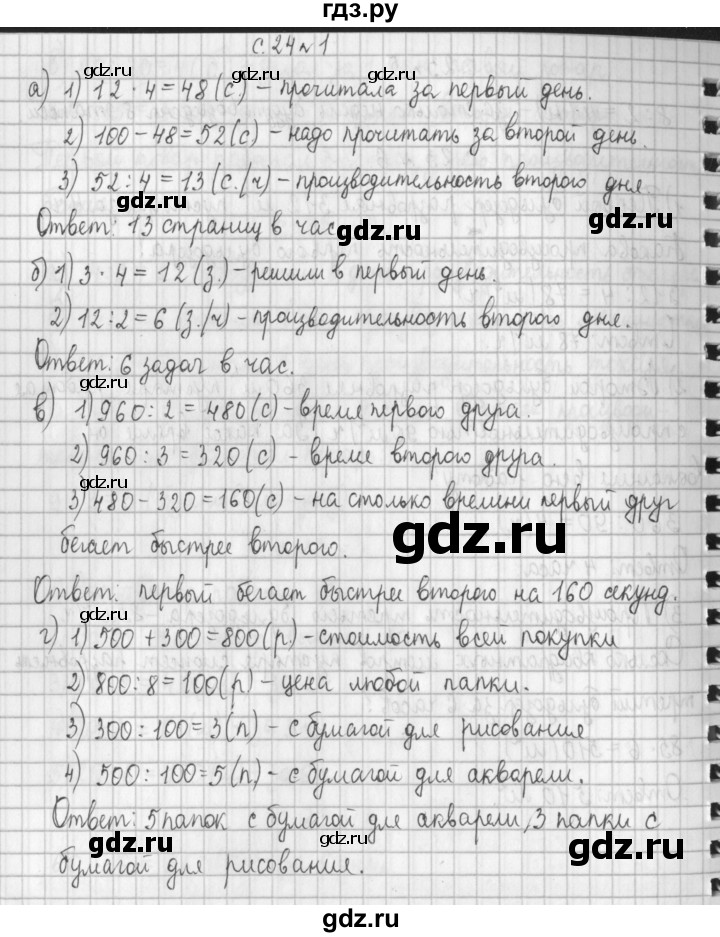 гдз.ру
с. 24 № 1
gdz.ru gdz.ru gdz.ru
а) 1) 12 · 4 = 48 (с) – прочитала за первый день.
2) 100 – 48 = 52 (с) – надо прочитать за второй день.
gdz.ru gdz.ru
3) 52 : 4 = 13 (с./ч) – производительность второго дня
gdz.ru
Ответ: 13 страниц в час
gdz.ru gdz.ru
б) 1) 3 · 4 = 12 (з.) – решили в первый день.
2) 12 : 2 = 6 (з./ч) – производительность второго дня.
Ответ: 6 задач в час.
gdz.ru gdz.ru
в) 1) 960 : 2 = 480 (с) – время первого друга.
2) 960 : 3 = 320 (с) – время второго друга.
gdz.ru gdz.ru
3) 480 – 320 = 160 (с) – на столько времени первый друг
gdz.ru
бегает быстрее второго.
Ответ: первый бегает быстрее второго на 160 секунд.
gdz.ru gdz.ru
г) 1) 500 + 300 = 800 (р) – стоимость всей покупки
2) 800 : 8 = 100 (р) – цена любой папки.
gdz.ru gdz.ru
3) 300 : 100 = 3 (п) – с бумагой для рисования
4) 500 : 100 = 5 (п) – с бумагой для акварели.
Ответ: 5 папок с бумагой для акварели, 3 папки с
gdz.ru gdz.ru
бумагой для рисования.
gdz.ru